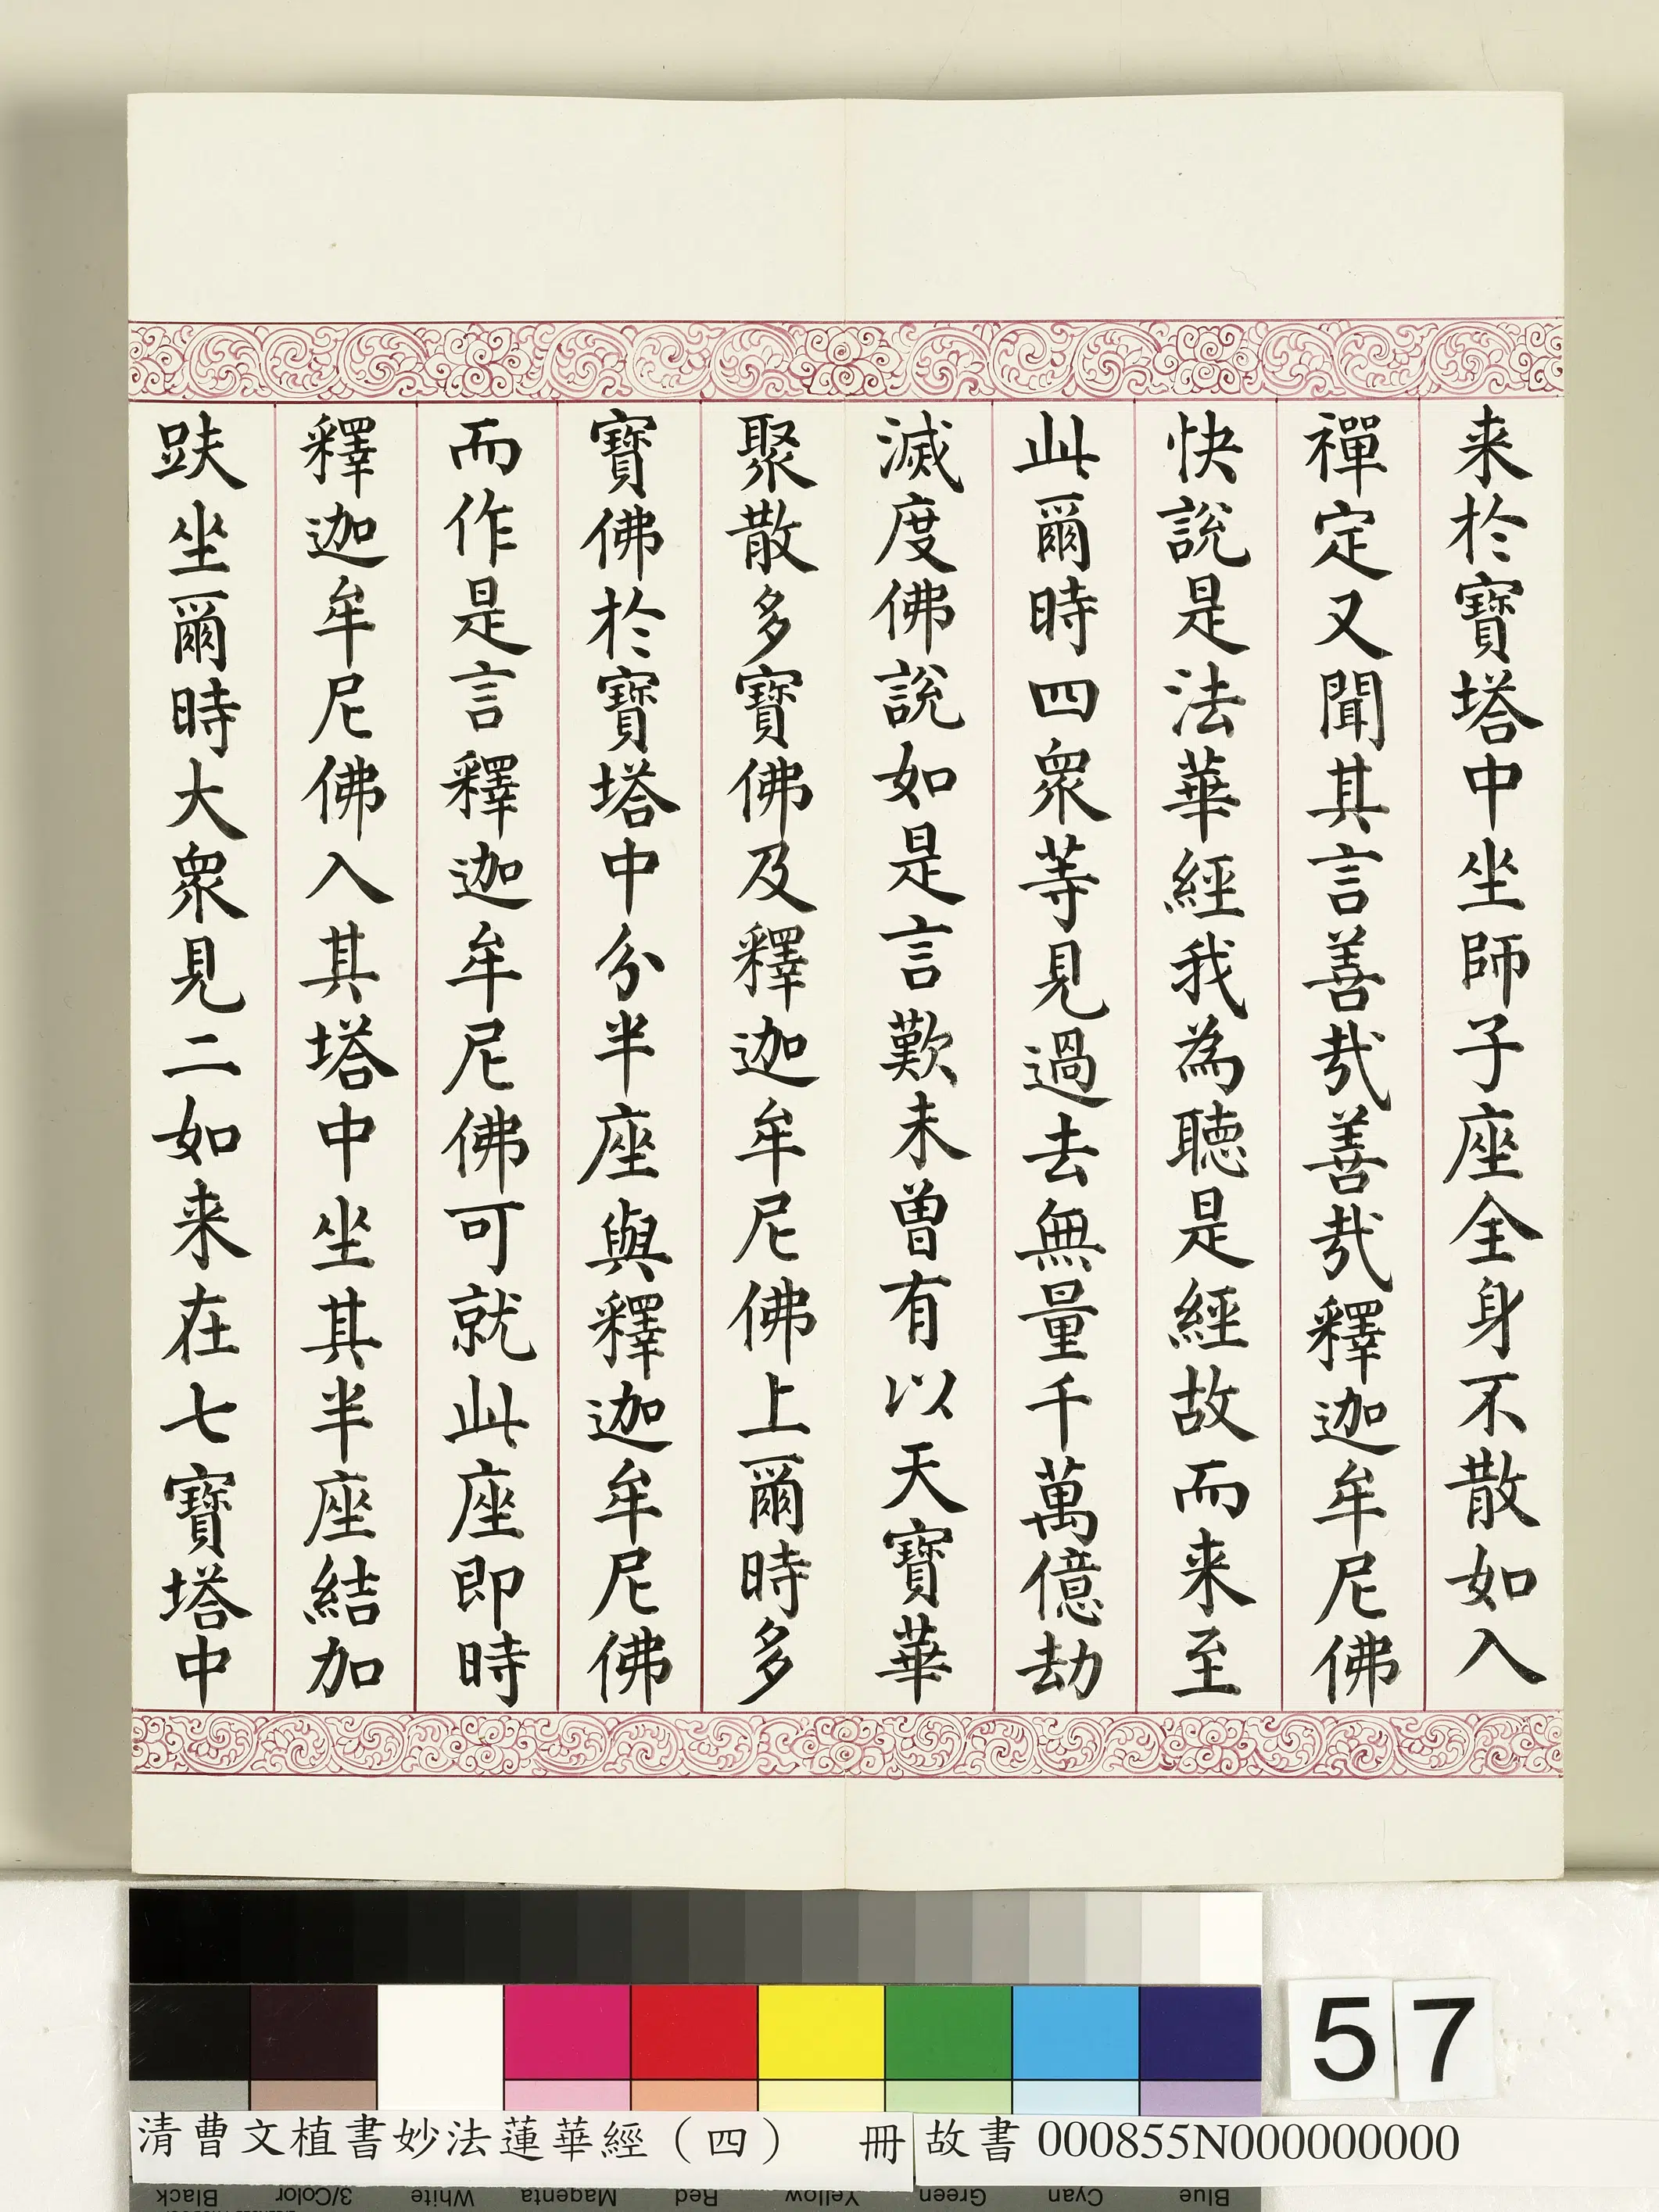 来於寶塔中坐師子座全身不散如入
禪定又聞其言善哉善哉釋迦牟尼佛
快說是法華經我為聴是經故而来至
此爾時四衆等見過去無量千萬億劫
滅度佛說如是言歎未曾有以天寶華
聚散多寶佛及釋迦牟尼佛上爾時多
寶佛於寶塔中分半座與釋迦牟尼佛
而作是言釋迦牟尼佛可就此座即時
釋迦牟尼佛入其塔中坐其半座結加
趺坐爾時大衆見二如来在七寶塔中
57
清曹文植書妙法蓮華經（四） 冊
故書 000855N000000000
Black 3/Color White Magenta Red Yellow Green Cyan Blue